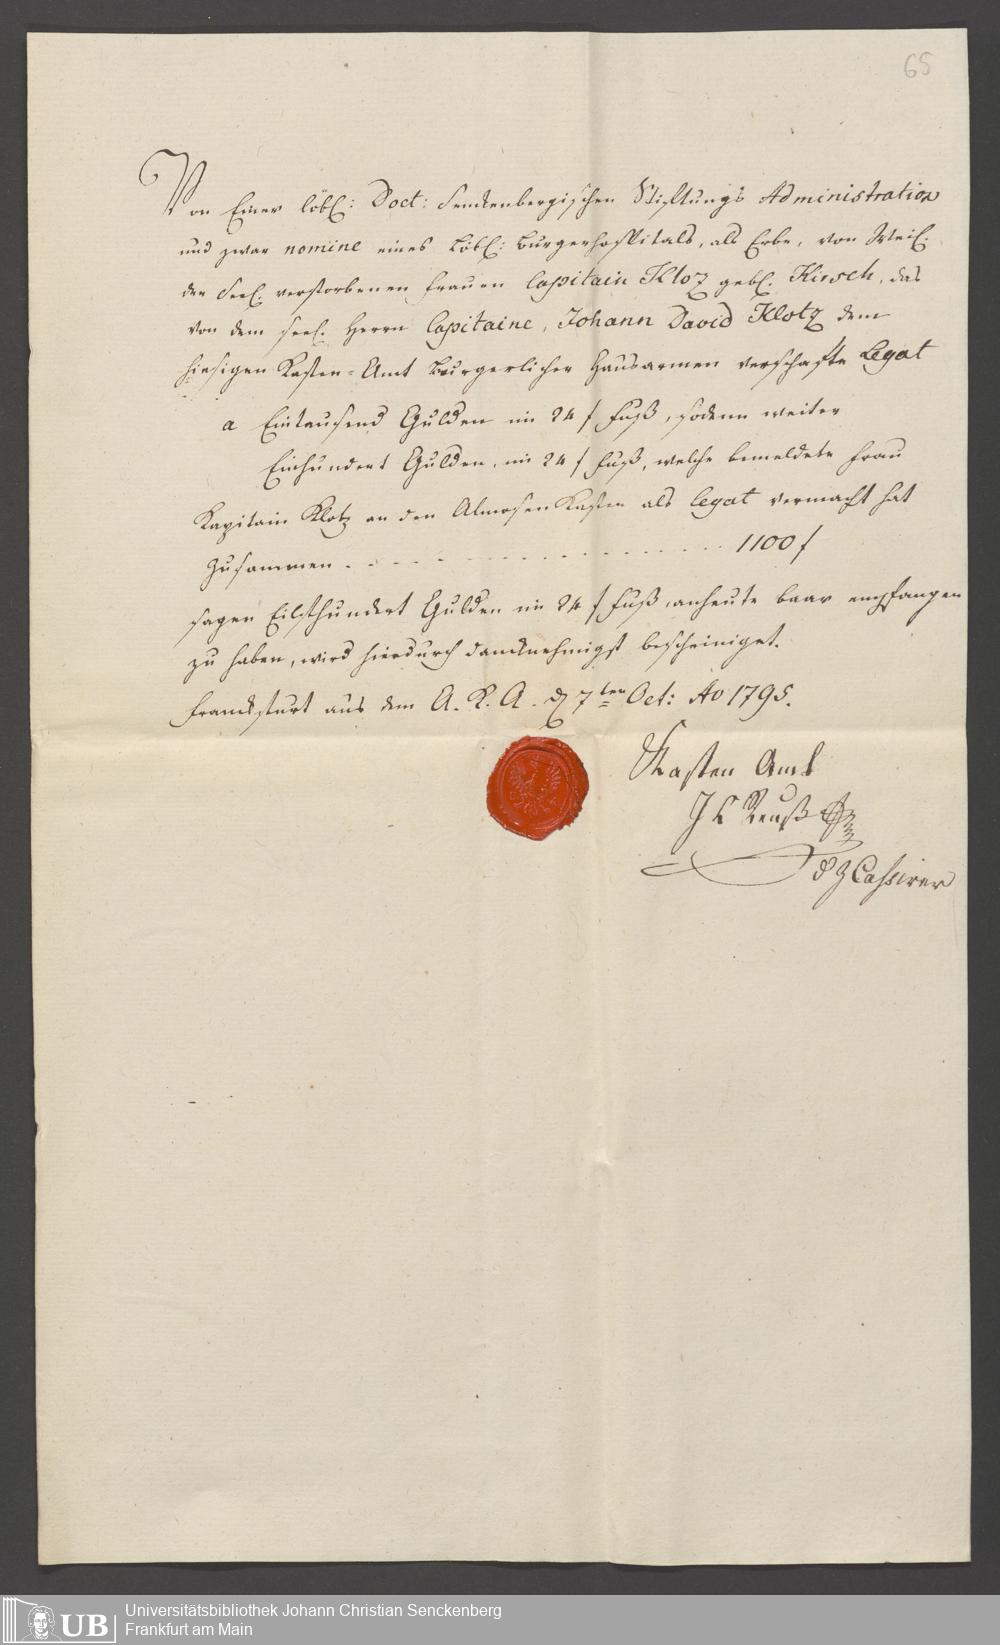 65
Von Einer löbl: Doct: Senckenbergischen Stiftungs Administration
und zwar nomine eines Löbl: Burgerhospitals, als Erbe, von Weil.
der Seel. verstorbenen Frauen Capitain Kloz gebl. Kirsch, das
von dem seel. Herrn Capitaine, Johann David Klotz dem
hiesigen Kasten-Amt Burgerlicher Hausarmen verschafte Legat
a Eintausend Gulden im 24 f Fuß, sodenn weiter
Einhundert Gulden, im 24 f Fuß, welche bemeldete Frau
Kapitain Klotz an den Almosen Kasten als legat vermacht hat
Zusammen . . . . . . . . . . . . . . . . . 1100 f
sagen Eilfhundert Gulden im 24 f Fuß, anheute baar empfangen
zu haben, wird hierdurch dancknehmigst bescheiniget.
Franckfurt aus dem A. K. A. d 7ten Oct: Ao 1795.
Kasten Amt
J C Reuß
d Z Cassirer
UB
Universitätsbibliothek Johann Christian Senckenberg
Frankfurt am Main